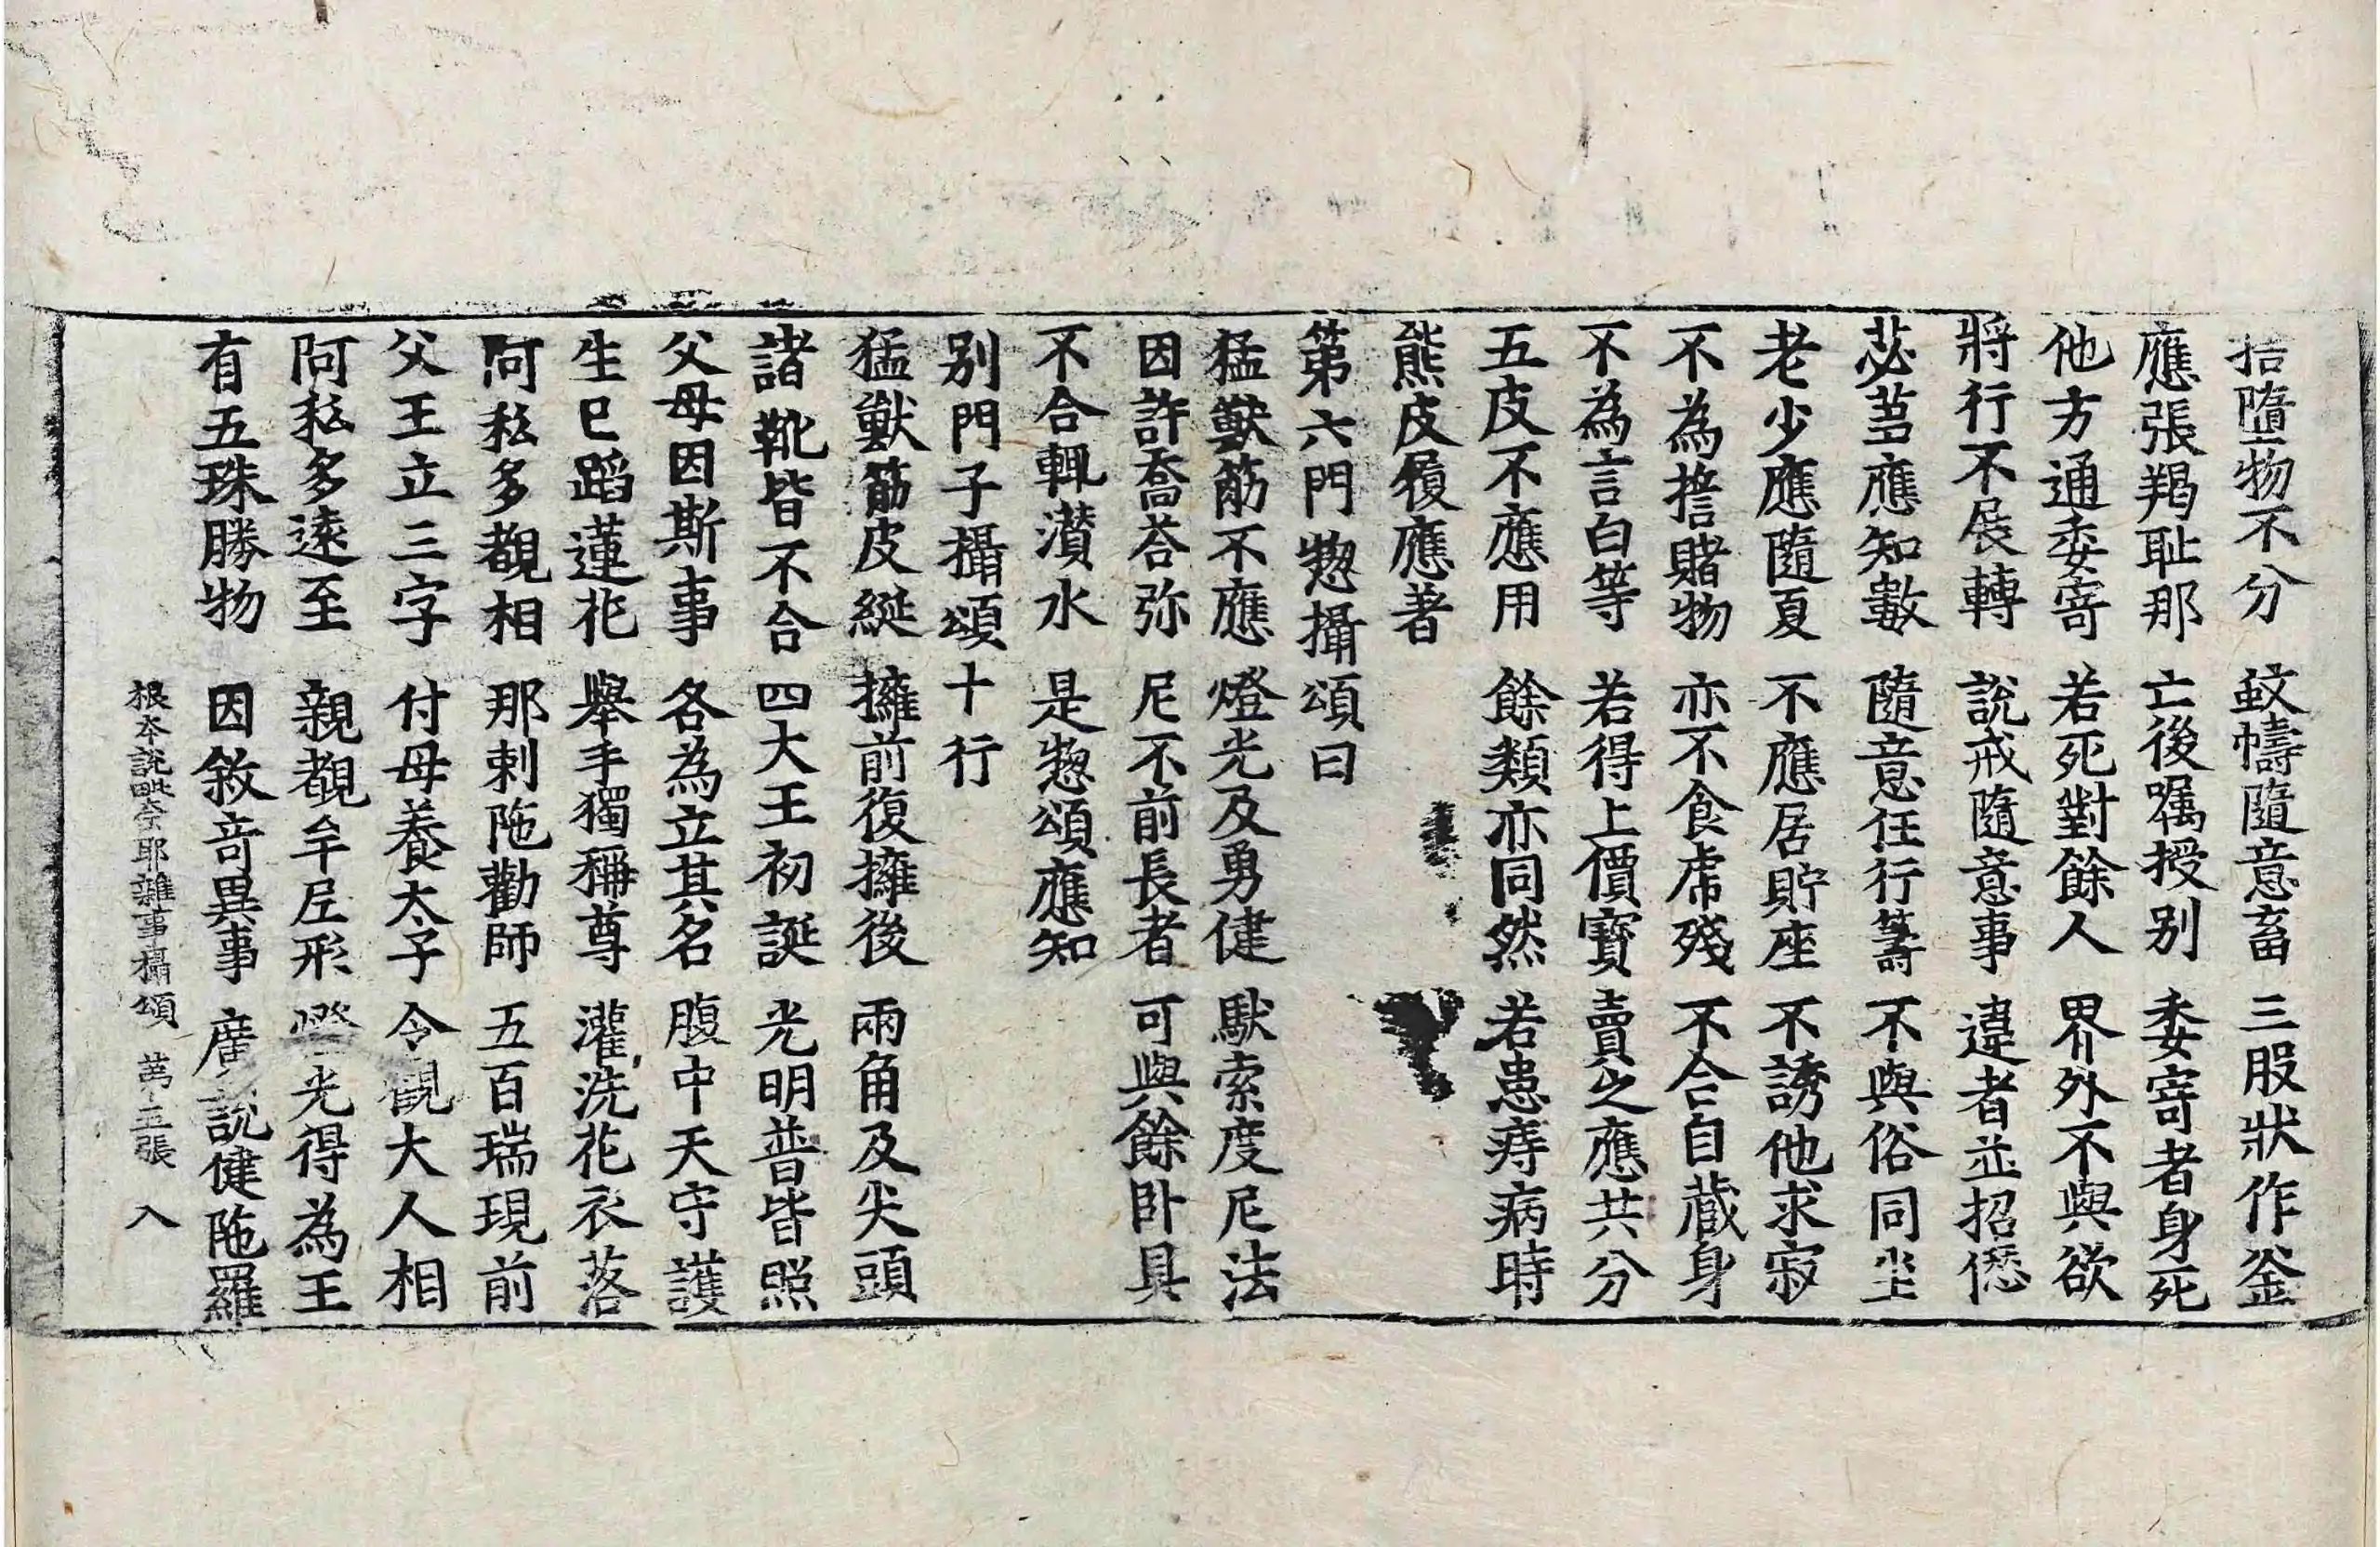 拾墮物不分 蚊幬隨意畜 三股狀作釜
應張羯耻那 亡後囑授別 委寄者身死
他方通委寄 若死對餘人 界外不與欲
將行不展轉 說戒隨意事 違者並招愆
苾芻應知數 隨意任行籌 不與俗同坐
老少應隨夏 不應居貯座 不誘他求寂
不為擔賭物 亦不食虎殘 不合自藏身
不為言白等 若得上價寶 賣之應共分
五皮不應用 餘類亦同然 若患痔病時
熊皮履應著
第六門惣攝頌曰
猛獸筋不應 燈光及勇健 馱索度尼法
因許喬荅弥 尼不前長者 可與餘臥具
不合輒濽水 是惣頌應知
別門子攝頌十行
猛獸筋皮綖 擁前復擁後 兩角及尖頭
諸靴皆不合 四大王初誕 光明普皆照
父母因斯事 各為立其名 腹中天守護
生已蹈蓮花 舉手獨稱尊 灌洗花衣落
阿私多覩相 那剌陁勸師 五百瑞現前
父王立三字 付母養太子 令覩大人相
阿私多遠至 親觀牟尼形 燈光得為王
有五珠勝物 因敘奇異事 廣說健陁羅
根本說毗奈耶雜事攝頌 第五張 入